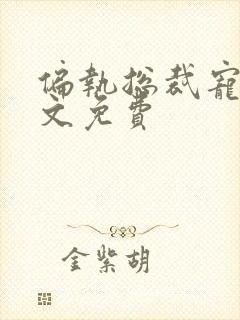 偏執总裁寵
文免費
金紫胡